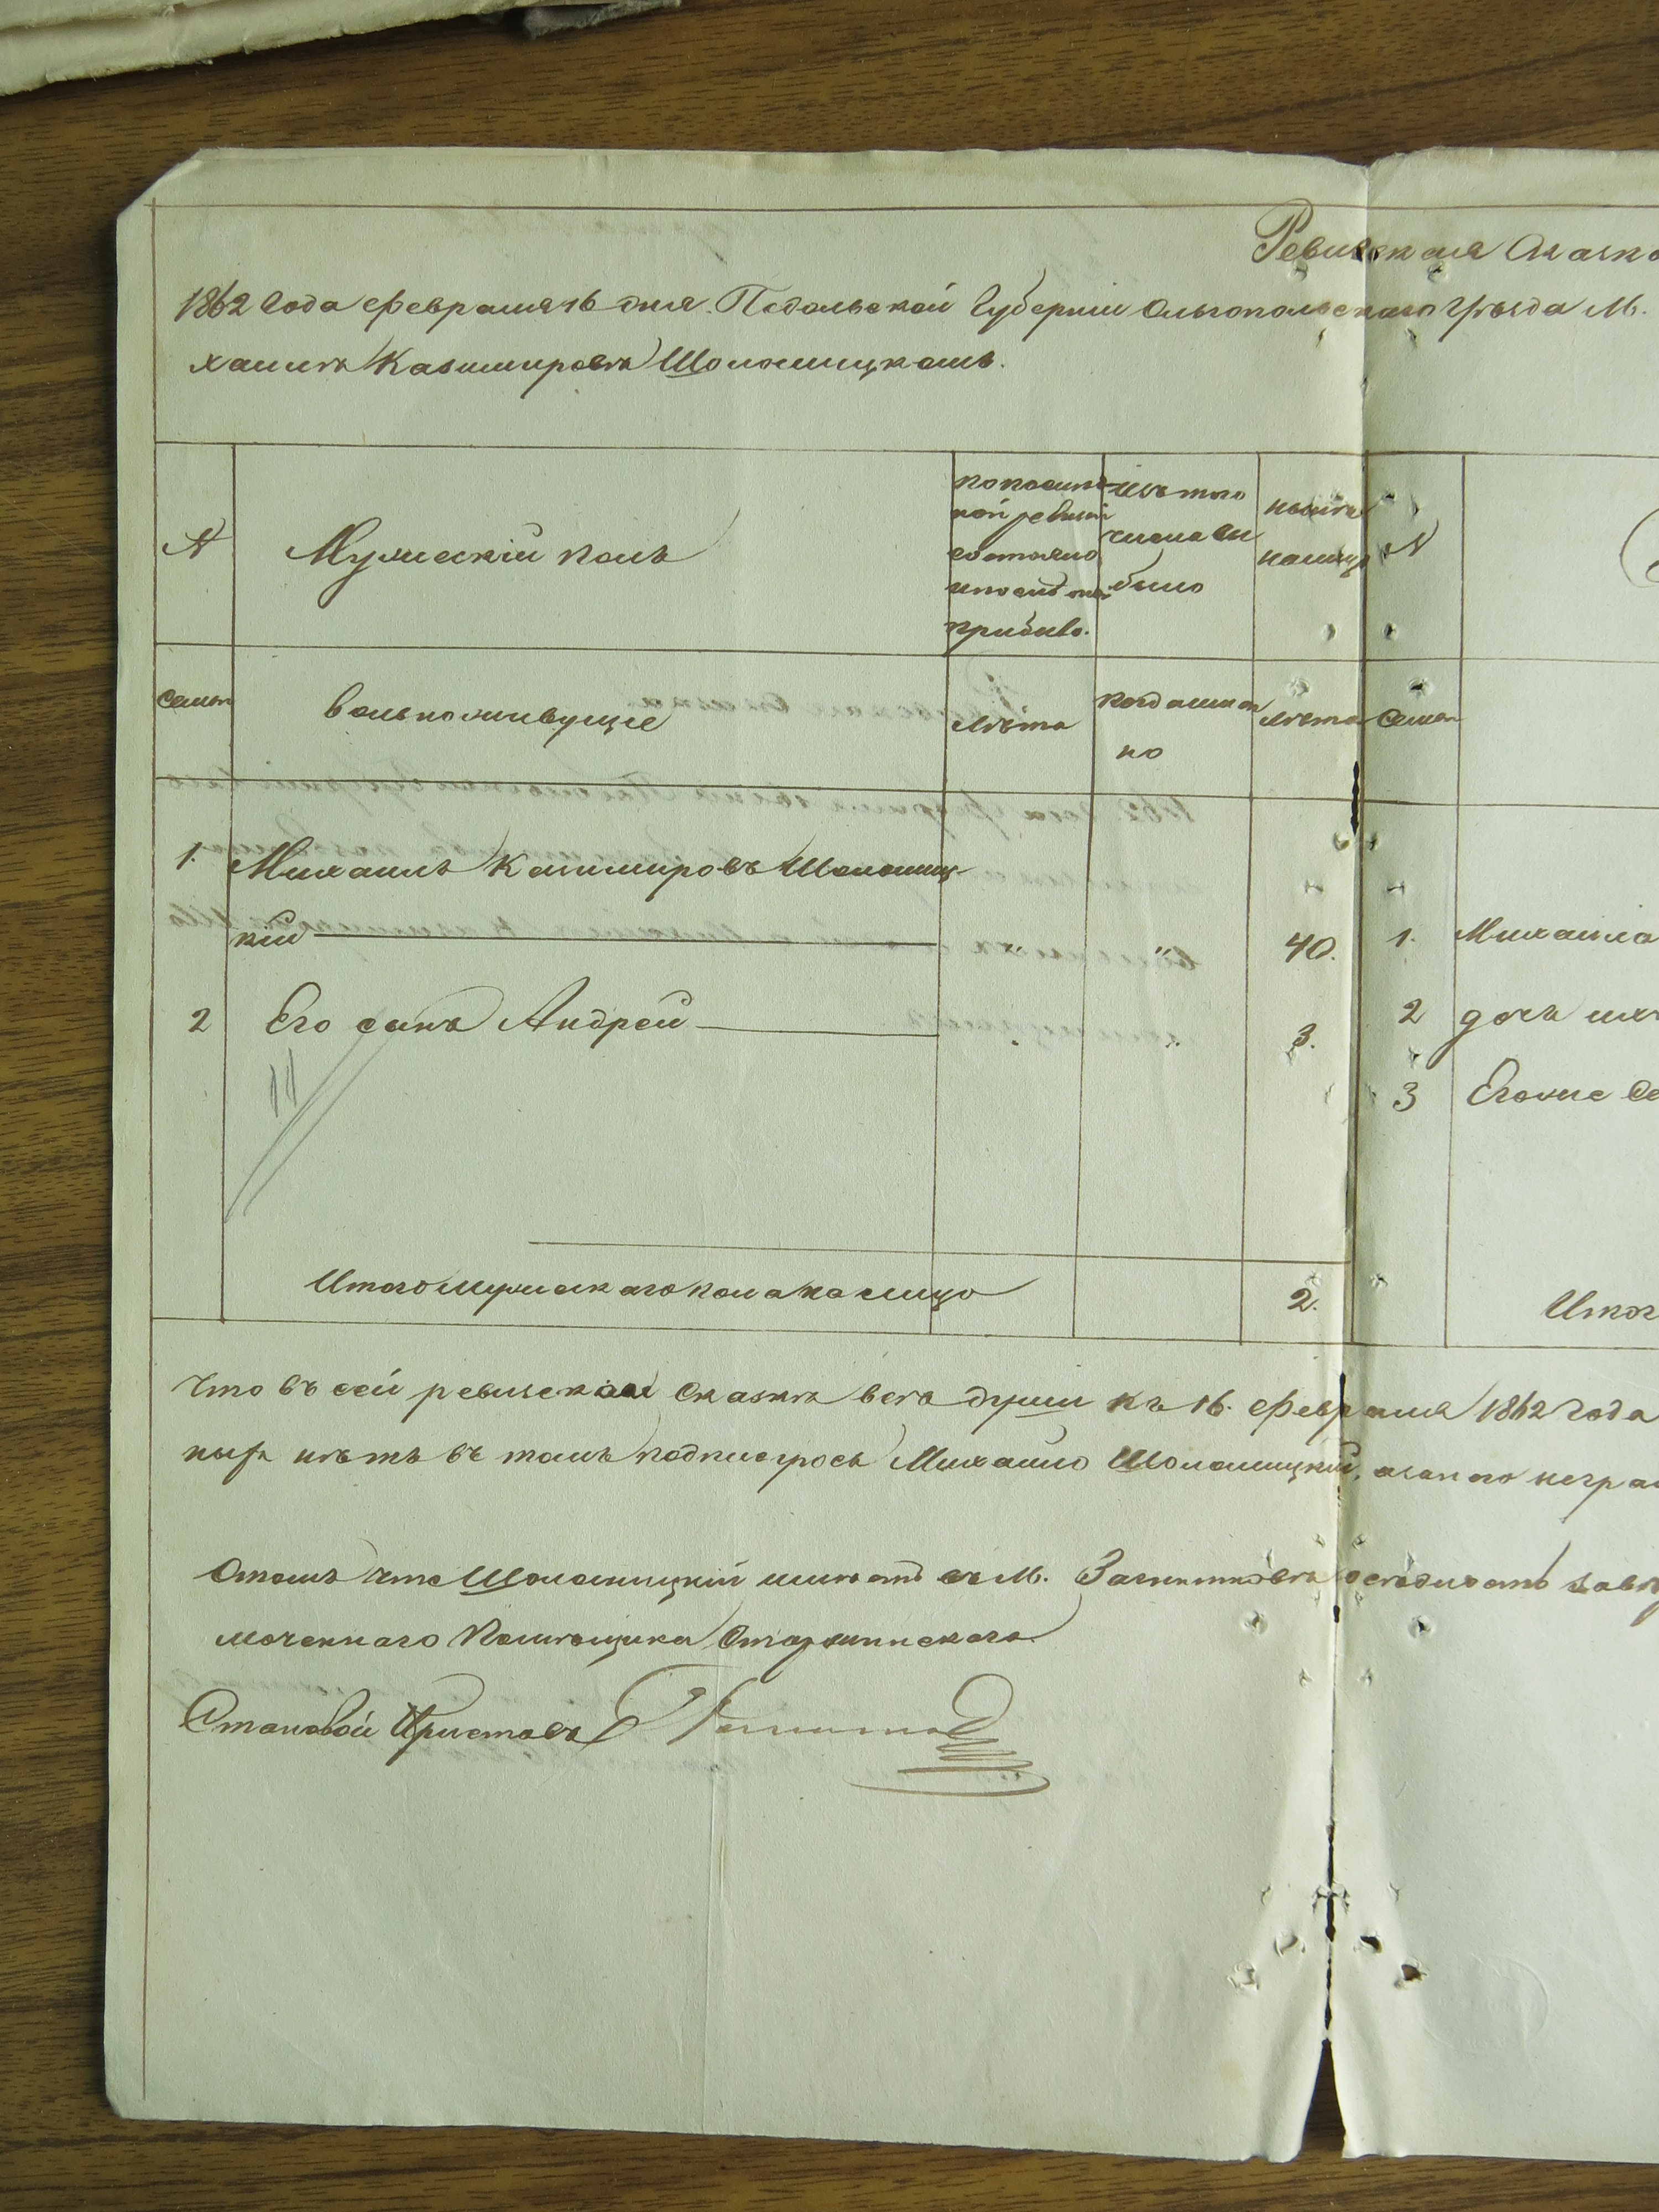 Ревизская Сказка
1862 Года Февраля 16 дня. Подольской Губернии Ольгопольскаго Уезда М.
хаиле Казимирове Шоломицкомъ.
№
Мужескій полъ
по послед
ней ревизіи
состояло
и после той
прибыло.
изъ того
числа вы
было
ныне
налицо
№
семьи
вольноживущіе
лета
когда имян
но
лета
семьи
1. Михаилъ Казимировъ Шоломиц-
кій 40.
1. Михаила
2 Его сынъ Андрей 3.
2 дочь ихъ
11
3 Егоже Се
Итого мужескаго пола налицо 2.
Итог
Что въ сей ревизской Сказке все души къ 16. Февраля 1862 года
ныхъ нетъ въ томъ подписуюсь Михайло Шоломицкій, а за него неграм
Отомъ что Шоломицкій живетъ въ М. Загниткове
моченнаго Помещика Старжинскаго.
Становой Приставъ